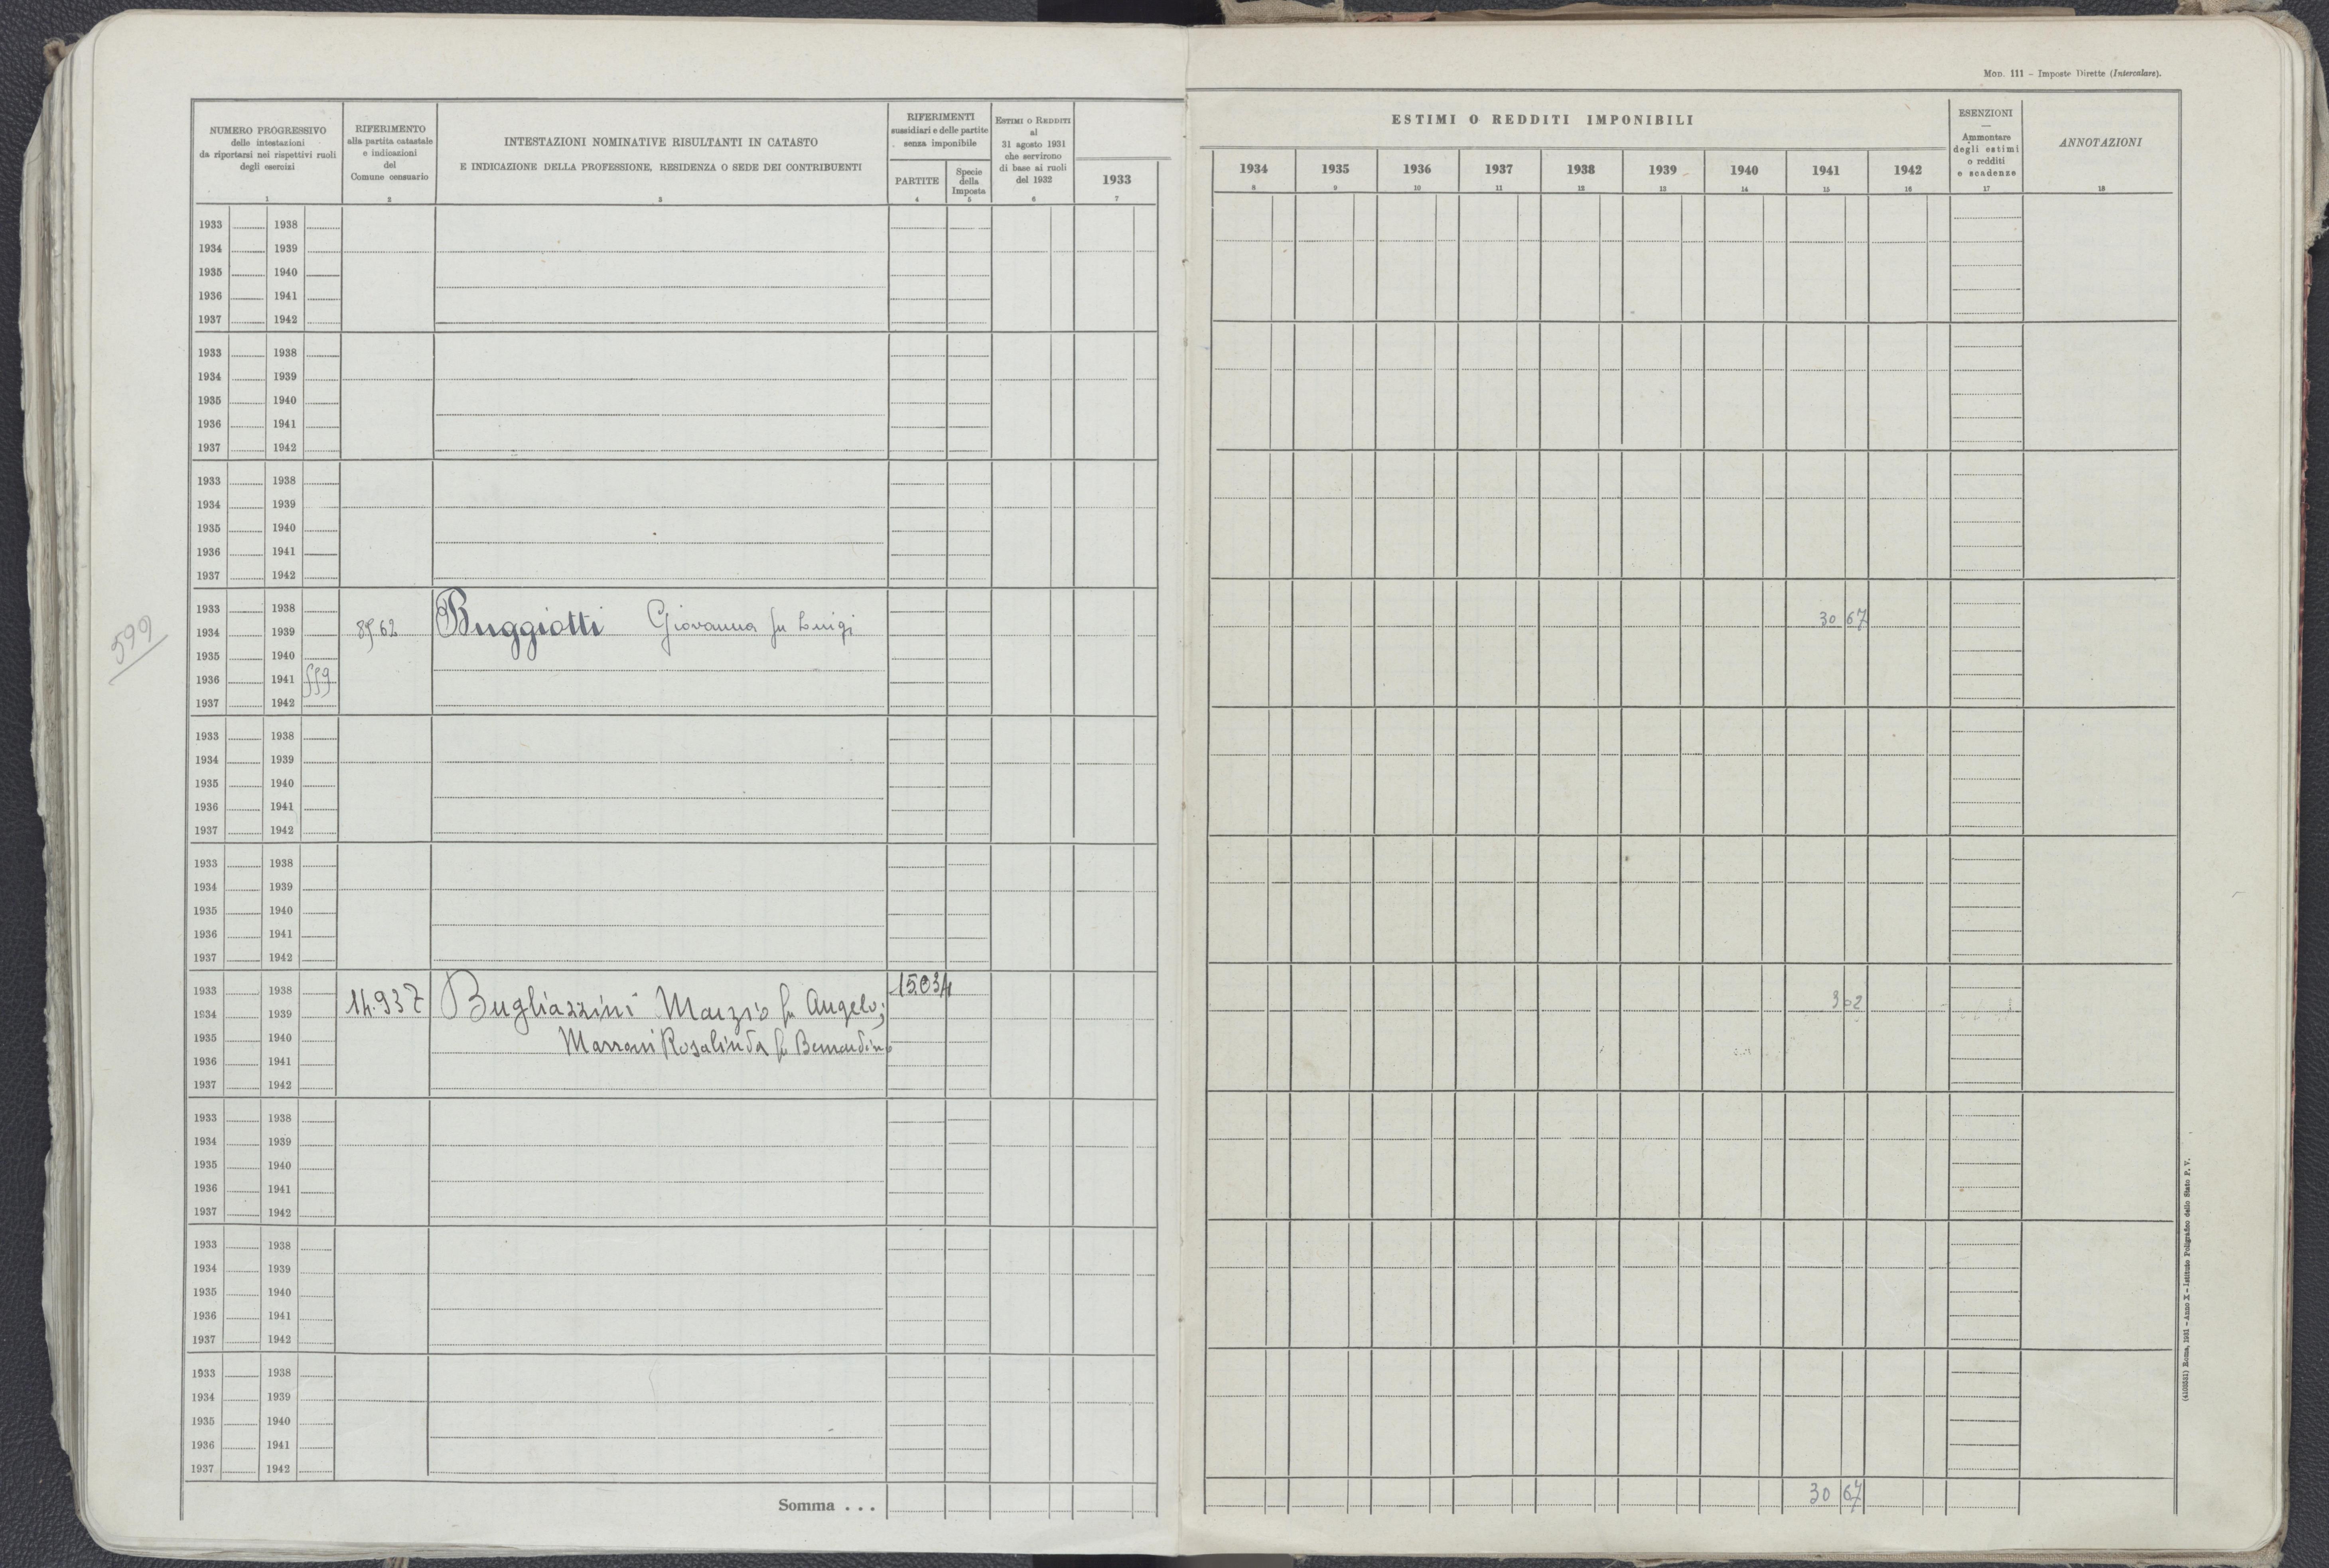 MOD. 111 – Imposte Dirette (Intercalare).
NUMERO PROGRESSIVO
delle intestazioni
da riportarsi nei rispettivi ruoli
degli esercizi
1
RIFERIMENTO
alla partita catastale
e indicazioni
del
Comune censuario
2
INTESTAZIONI NOMINATIVE RISULTANTI IN CATASTO
E INDICAZIONE DELLA PROFESSIONE, RESIDENZA O SEDE DEI CONTRIBUENTI
3
RIFERIMENTI
sussidiari e delle partite
senza imponibile
PARTITE
4
Specie
della
Imposta
5
ESTIMI O REDDITI
al
31 agosto 1931
che servirono
di base ai ruoli
del 1932
6
1933
7
ESTIMI O REDDITI IMPONIBILI
1934 1935 1936 1937 1938 1939 1940 1941 1942
8 9 10 11 12 13 14 15 16
ESENZIONI
—
Ammontare
degli estimi
o redditi
e scadenze
17
ANNOTAZIONI
18
1933 1938
1934 1939
1935 1940
1936 1941
1937 1942
1933 1938
1934 1939
1935 1940
1936 1941
1937 1942
1933 1938
1934 1939
1935 1940
1936 1941
1937 1942
599
1933 1938
1934 1939 8562 Buggiotti Giovanna fu Luigi 30 67
1935 1940
1936 1941 559
1937 1942
1933 1938
1934 1939
1935 1940
1936 1941
1937 1942
1933 1938
1934 1939
1935 1940
1936 1941
1937 1942
1933 1938 15.034
1934 1939 14.937 Bugliazzini Marzio fu Angelo; 302
1935 1940 Marroni Rosalinda fu Bernardino
1936 1941
1937 1942
1933 1938
1934 1939
1935 1940
1936 1941
1937 1942
1933 1938
1934 1939
1935 1940
1936 1941
1937 1942
1933 1938
1934 1939
1935 1940
1936 1941
1937 1942
Somma . . . 30 67
(4103551) Roma, 1931 – Anno X – Istituto Poligrafico dello Stato P. V.